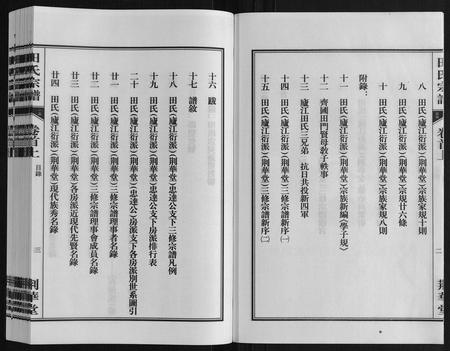 田氏宗譜
卷首上
二
荆華堂
八 田氏(廬江衍派)(荆華堂)宗族家規十則
九 田氏(廬江衍派)(荆華堂)宗規廿六條
十 田氏(廬江衍派)(荆華堂)宗族家規八則
附錄:
十一 田氏(廬江衍派)(荆華堂)宗族新編《學子規》
十二 齊國田門賢母教子軼事
十三 廬江田氏三兄弟 抗日共投新四軍
十四 田氏(廬江衍派)(荆華堂)三修宗譜新序(一)
十五 田氏(廬江衍派)(荆華堂)三修宗譜新序(二)
十六 跋
十七 譜敘
十八 田氏(廬江衍派)(荆華堂)(忠達公支下)三修宗譜凡例
十九 田氏(廬江衍派)(荆華堂)(忠達公)支下房派排行表
二十 田氏(廬江衍派)(荆華堂)(忠達公)房派支下各房派別世系圖引
廿一 田氏(廬江衍派)(荆華堂)三修宗譜理事者名錄
廿二 田氏(廬江衍派)(荆華堂)三修宗譜理事會成員名錄
廿三 田氏(廬江衍派)(荆華堂)各房派近現代先賢名錄
廿四 田氏(廬江衍派)(荆華堂)現代族秀名錄
田氏宗譜
卷首上
目錄
三
荆華堂